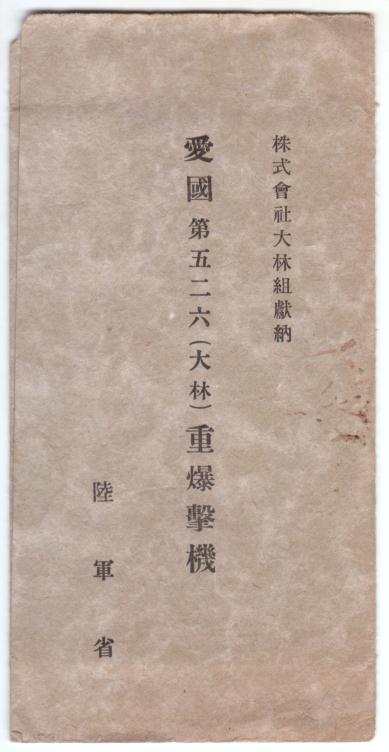 株式會社大林組獻納
愛國第五二六(大林)重爆擊機
陸軍省